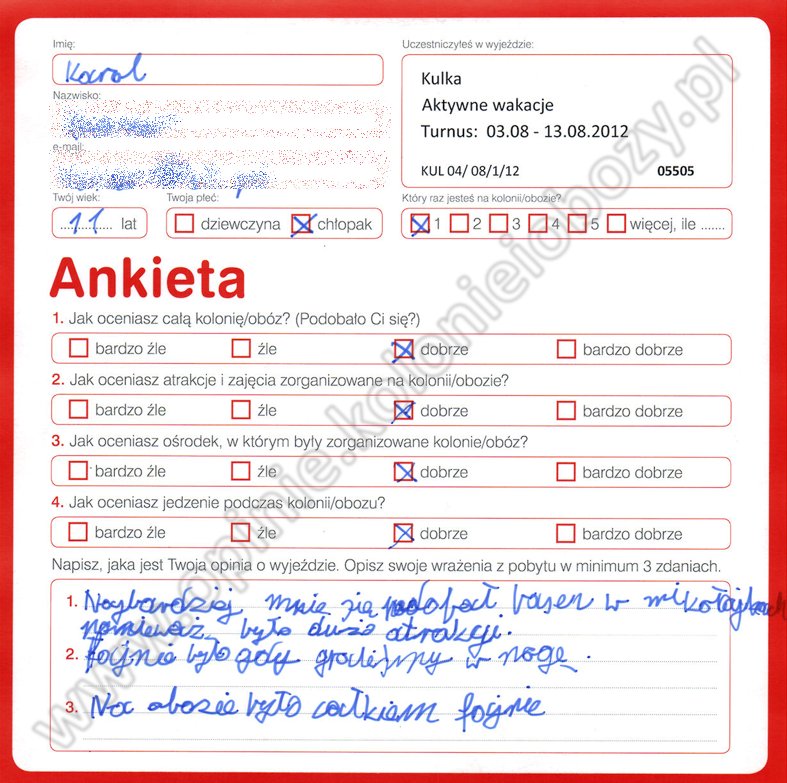 Imię:
Karol
Uczestniczyłeś w wyjeździe:
Kulka
Aktywne wakacje
Turnus: 03.08 - 13.08.2012
KUL 04/ 08/1/12 05505
Nazwisko:
e-mail:
Twój wiek:
11 lat
Twoja płeć:
dziewczyna chłopak
Który raz jesteś na kolonii/obozie?
1 2 3 4 5 więcej, ile .......
Ankieta
1. Jak oceniasz całą kolonię/obóz? (Podobało Ci się?)
bardzo źle źle dobrze bardzo dobrze
2. Jak oceniasz atrakcje i zajęcia zorganizowane na kolonii/obozie?
bardzo źle źle dobrze bardzo dobrze
3. Jak oceniasz ośrodek, w którym były zorganizowane kolonie/obóz?
bardzo źle źle dobrze bardzo dobrze
4. Jak oceniasz jedzenie podczas kolonii/obozu?
bardzo źle źle dobrze bardzo dobrze
Napisz, jaka jest Twoja opinia o wyjeździe. Opisz swoje wrażenia z pobytu w minimum 3 zdaniach.
1. Najbardziej mnie się podobał basen w mikołajkach
ponieważ było dużo atrakcji.
2. fajnie było gdy graliśmy w nogę.
3. Na obozie było całkiem fajnie
www.opinie.kolonieiobozy.pl